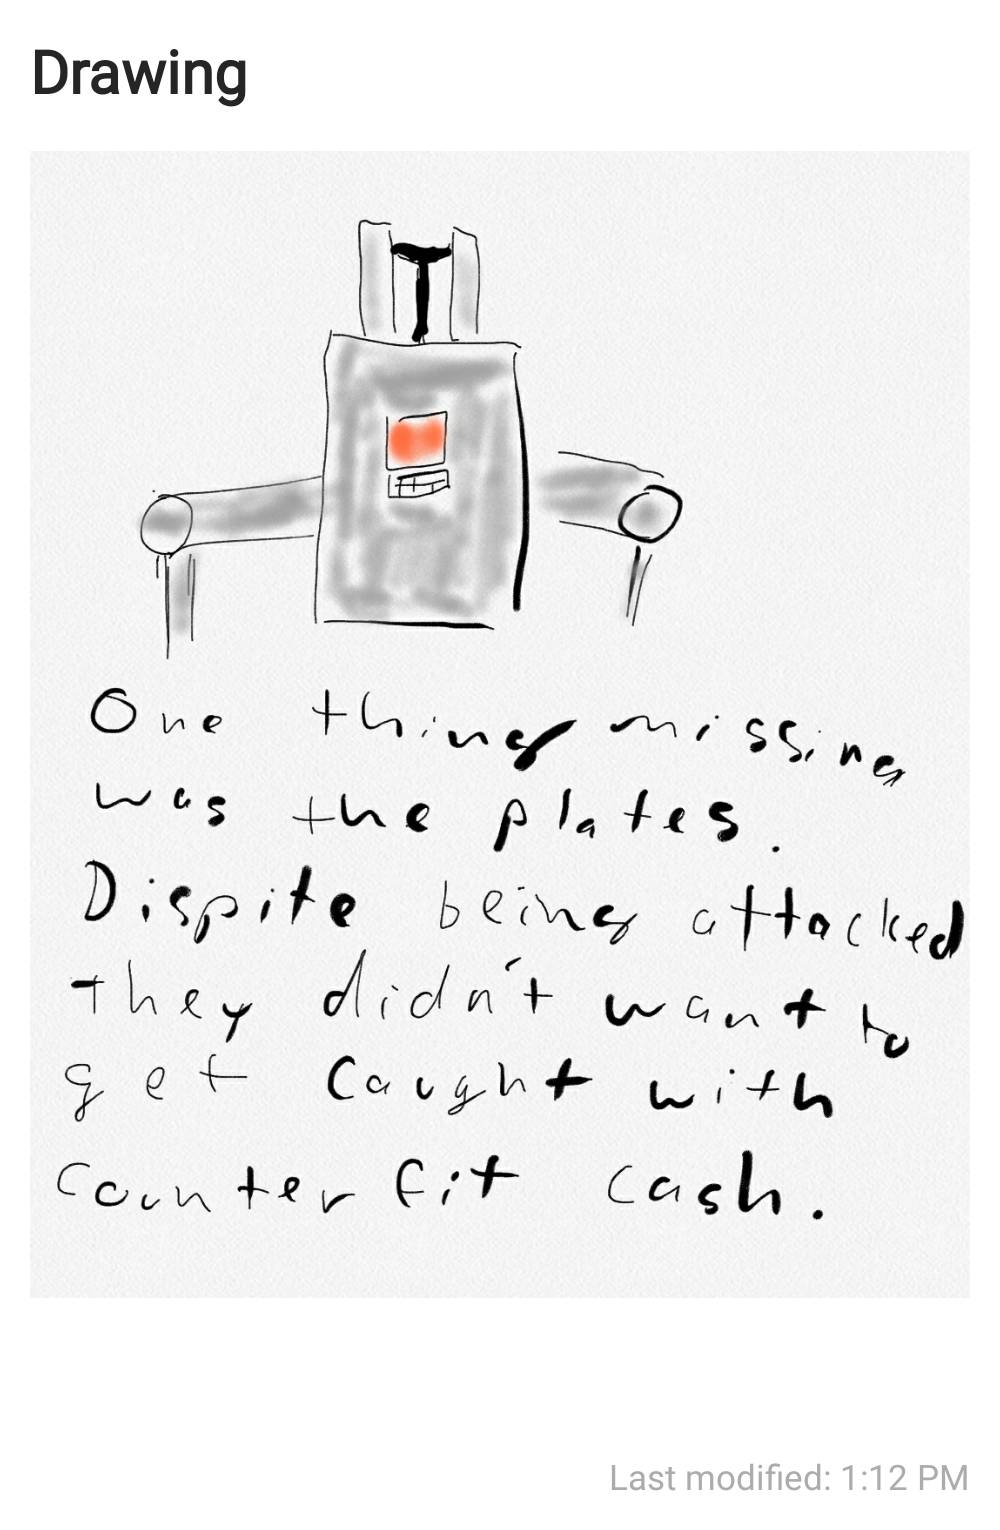 Drawing
One thing missing
was the plates.
Dispite being attacked
they didn't want to
get caught with
counter fit cash.
Last modified: 1:12 PM